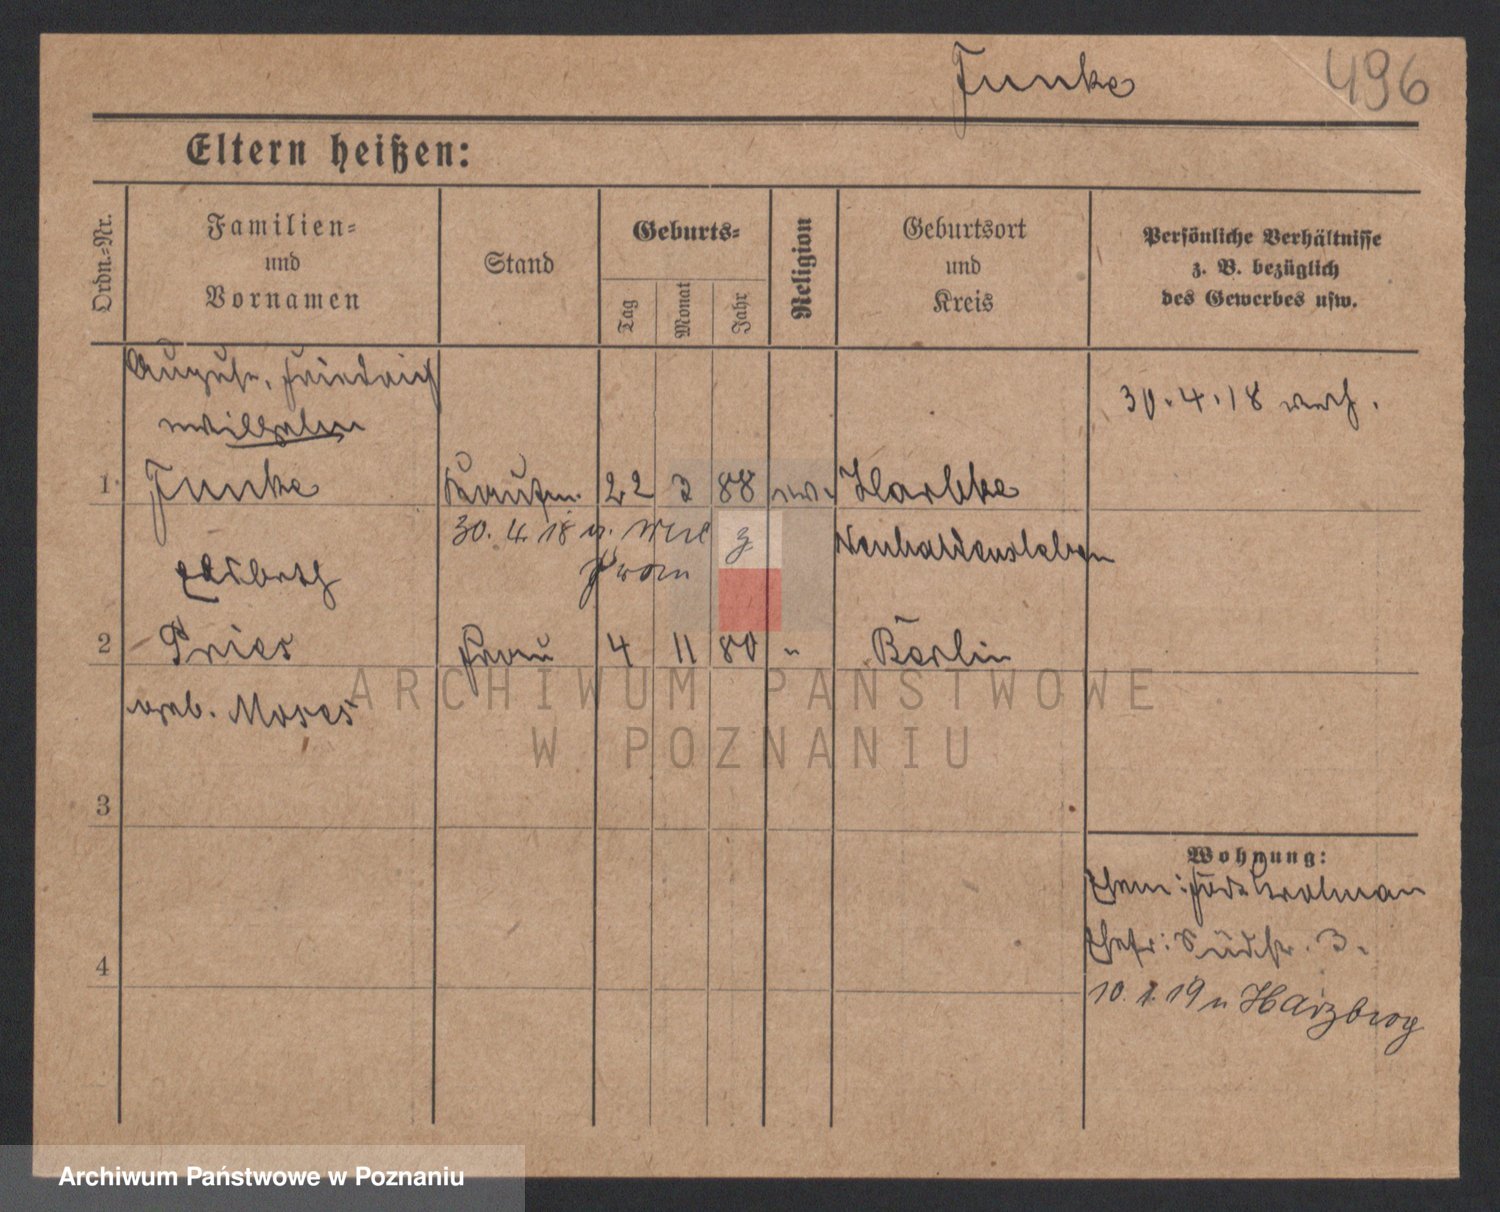 Funke 496
Eltern heißen:
Ordn.-Nr.
Familien-
und
Vornamen
Stand
Geburts-
Tag
Monat
Jahr
Religion
Geburtsort
und
Kreis
Persönliche Verhältnisse
z. B. bezüglich
des Gewerbes usw.
August, Friedrich
Wilhelm
30.4.18 verh.
1 Funke Kaufm. 22 88 Harbke
30. 4. 18 Neuhaldensleben
Elsbeth
2 Pries Frau 4 11 80 " Berlin
geb. Moses
3
Wohnung:
Ehem:
Ehefr: Südstr. 3.
4
10. 1. 19 n Harzburg
ARCHIWUM PAŃSTWOWE
W POZNANIU
Archiwum Państwowe w Poznaniu